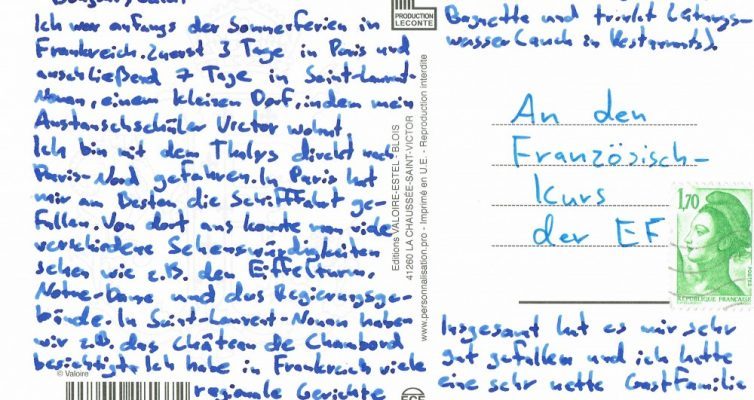 Ich war anfangs der Sommerferien in
Frankreich. Zuerst 3 Tage in Paris und
anschließend 7 Tage in Saint-Laurent-
Nouan, einem kleinen Dorf, indem mein
Austauschschüler Victor wohnt.
Ich bin mit dem Thalys direkt nach
Paris-Nord gefahren. In Paris hat
mir am Besten die Schifffahrt ge-
fallen. Von dort aus konnte man viele
verschiedene Sehenswürdigkeiten
sehen wie z.B. den Eiffelturm,
Notre-Dame und das Regierungsge-
bäude. In Saint-Laurent-Nouan haben
wir z.B. das Château de Chambord
besichtigt. Ich habe in Frankreich viele
regionale Gerichte
© Valoire
PRODUCTION
LECONTE
Editions VALOIRE-ESTEL - BLOIS
41260 LA CHAUSSÉE-SAINT-VICTOR
www.personnalisation.pro - Imprimé en U.E. - Reproduction interdite
Baguette und trinkt Leitungs-
wasser (auch in Restaurants).
An den
Französisch-
kurs
der EF
1,70
REPUBLIQUE FRANCAISE
Insgesamt hat es mir sehr
gut gefallen und ich hatte
eine sehr nette Gastfamilie